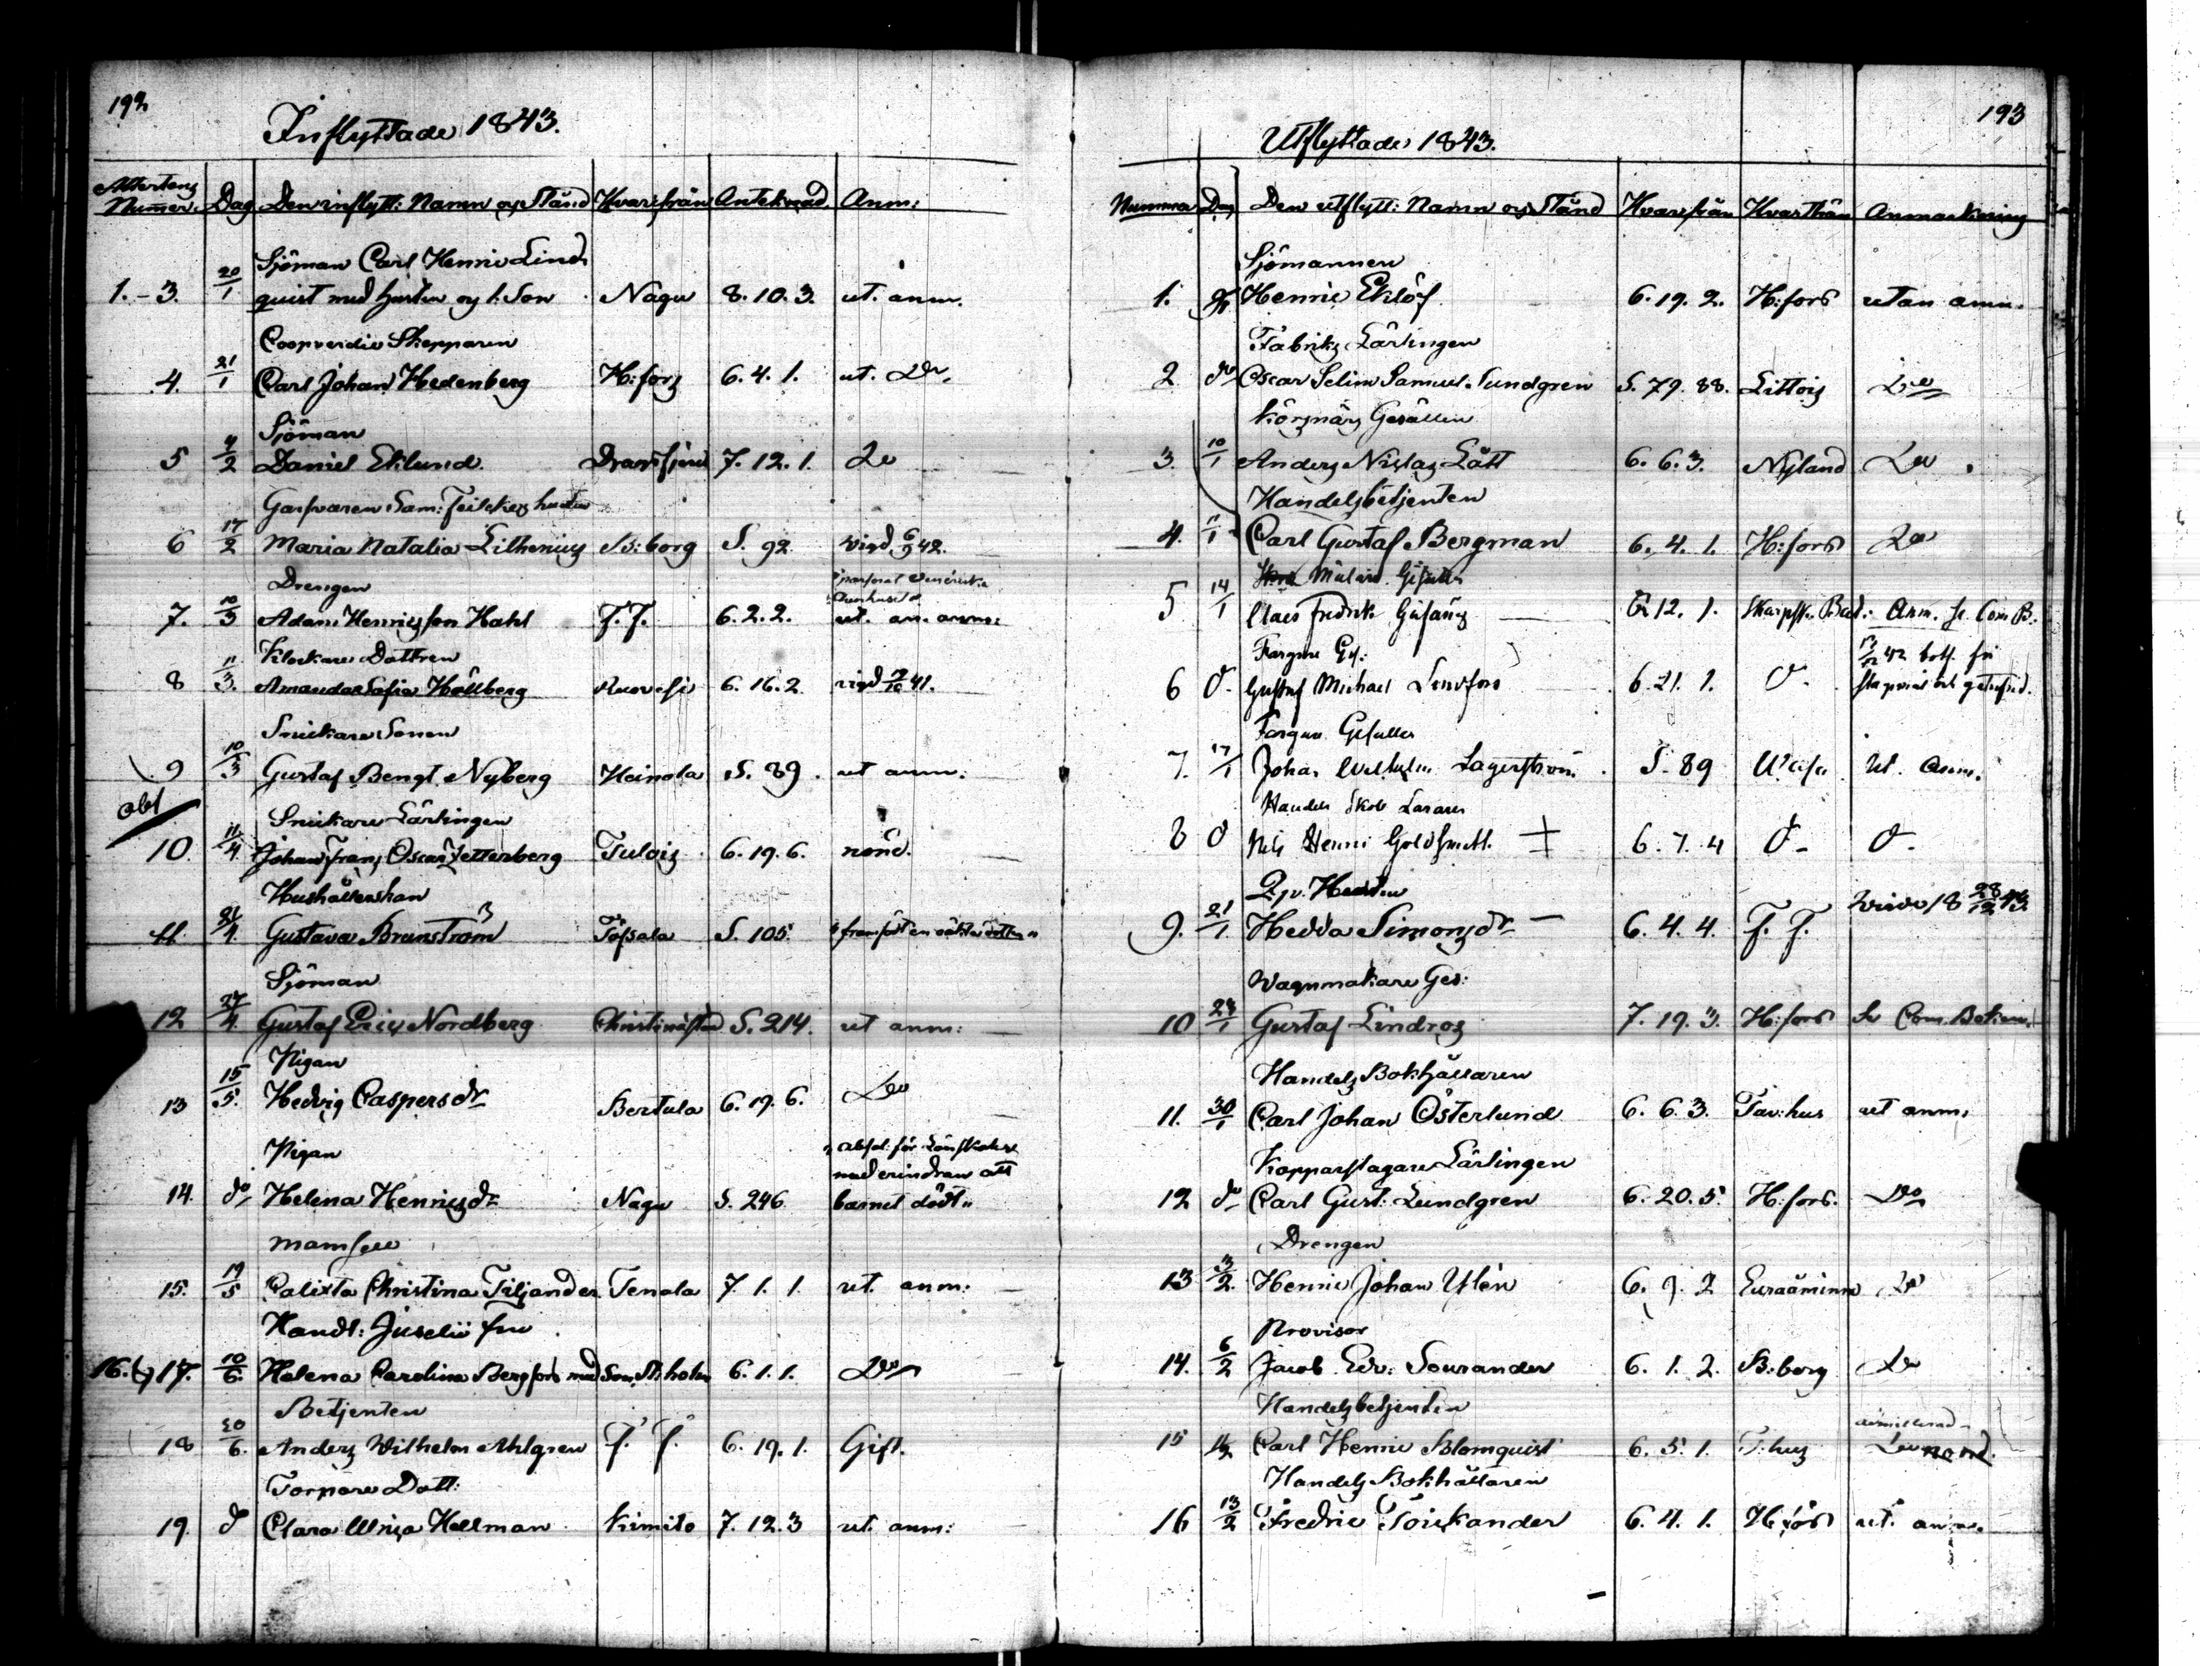 192
Inflyttade 1843.
Attertens Numer. Dag Den inflytt: Namn og Stånd Hvarifrån Anteknad Anm:
Sjöman Carl Henric Lind
1.-3. 20/1 quist med hustru og 1. Son Nagu 8.10.3. ut. anm.
Coopverdie Skepparen
4. 21/1 Carl Johan Hedenberg H:fors 6.4.1. ut. Do
Sjöman
5 4/2 Daniel Eklund Dragsfjerd 7.12.1. Do
Garfvaren Sam: hustru
6 17/2 Maria Natalia Lilhenius B:borg S. 92 vigd 6/9 42.
Drengen
7. 10/3 Adam Henricsson Hahl F.F. 6.2.2. ut. an. anm:
Klockare Dottren
8 11/3. Amanda Sofia Hållberg Ruovesi 6.16.2. vigd 2/10 41.
Snickare Sonen
9 10/3 Gustaf Bengt Nyberg Heinola S. 89. ut anm:
obs
Snickare Lärlingen
10. 11/4. Johan Frans Oscar Zetterberg Tulois 6.19.6. nönd.
Hushållerskan
11. 21/4. Gustava Brunström Töfsala S. 105. framfödt en oäkta dotter
Sjöman
12 27/4. Gustaf Eric Nordberg Christinæstad S. 214. ut anm:
Pigan
13 15/5. Hedvig Caspersdr Bertula 6.19.6. Do
Pigan
absol. för Lönskaläge
med erindran att
14. do Helena Henricsdr Nagu S. 246 barnet dödt
Mamsell
15. 19/5 Calixta Christina Tiljander Tenala 7.1.1. ut. anm:
Handl: Juselii fru
16. og 17. 10/6. Helena Carolina Bergfors med Son St:holm 6.1.1. Do
Betjenten
18 20/6. Anders Wilhelm Ahlgren F. F. 6.19.1. Gift.
Torpare Dott:
19. do Clara Ulrica Hellman Kimito 7.12.3 ut. anm:
193
Utflyttade 1843.
Nummer Dag Den utflytt: Namn og Stånd Hvarifrån Hvarthän Anmärkning
Sjömannen
1. Henric Eklöf 6.19.2. H:fors utan anm.
Fabriks Lärlingen
2. do Oscar Selim Samuel Sundgren S. 79. 88. Littois Do
Körsnärs Gesällen
3. 10/1 Anders Niclas Lätt 6.6.3. Nyland Do
Handelsbetjenten
4. 11/1 Carl Gustaf Bergman 6.4.1. H:fors Do
Målare Gesällen
5 14/1 Claes Fredrik 6.12.1. Skarpsk. Bat: Anm. se Com B.
Fargare Ges:
6 do Gustaf Michael Lindfors 6.21.1. do
Fargare Gesällen
7. 17/1 Johan Wilhelm Lagerström S. 89 Wasa Ut. Anm.
Handels Skole Läraren
8 do Nils Henric Goldsmidt 6.7.4 do do
Qv. Hustru
9. 21/1 Hedda Simonsdr 6.4.4. F. F. 28/12
Wagnmakare Ges:
10 23/1 Gustaf Lindros 7.19.3. H:fors Se Com. Bok
Handels Bokhållaren
11. 30/1 Carl Johan Österlund 6.6.3. Tav:hus ut anm:
Kopparslagare Lärlingen
12 do Carl Gust: Lundgren 6.20.5. H:fors. Do
Drengen
13 3/2. Henric Johan Ylén 6.9.2 Euraåminne Do
Provisor
14. 6/2 Jacob Edv: Sourander 6.1.2. B:borg Do
Handelsbetjenten
15 Carl Henric Blomquist 6.5.1. T:hus Do nönd.
Handels Bokhållaren
16 13/2 Fredric Törckander 6.4.1. H:fors ut. anm.